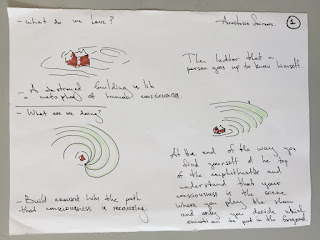 - What do we have?
A destroyed building is like
metaphor of human consciousness.
- What are we doing?
- Build around him the path
that consciousness is recovering.
1
The ladder that a
person goes up to know himself
At the end of the way you
find yourself at the top
of the amphitheater and
understand that your
consciousness is the scene
where you play the show
and only you decide which
emotion to put in the foreground